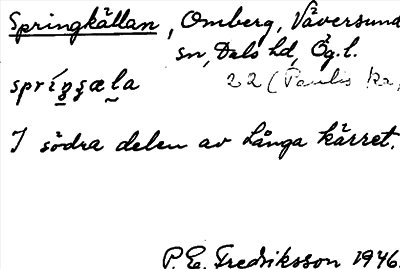 Springkällan, Omberg, Väversunda
sn, Dals hd, Ög.l.
spríŋ̱ʒæḻa 22 (Paulis
I södra delen av Långa kärret.
P. E. Fredriksson 1946.